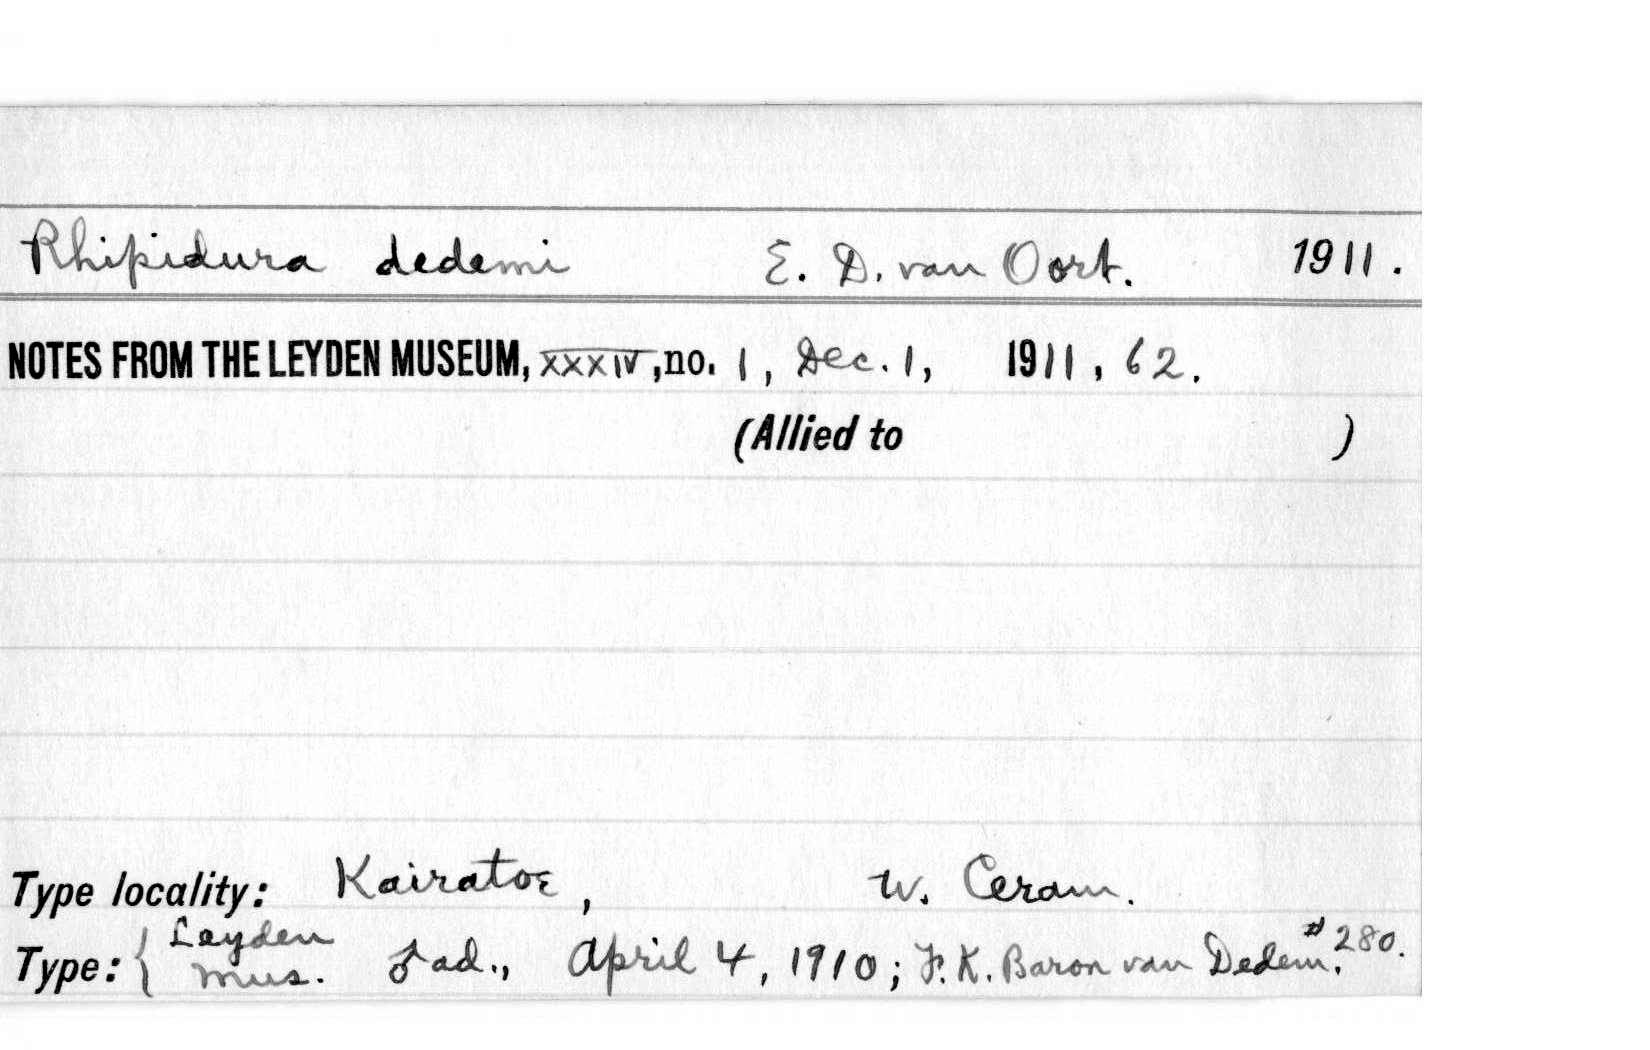 Rhipidura dedemi E. D. van Oort. 1911.
NOTES FROM THE LEYDEN MUSEUM, XXXIV, no. 1, Dec. 1, 1911, 62.
(Allied to )
Type locality: Kairatoe, W. Ceram.
Type: { Leyden Mus. ♂ ad., April 4, 1910; F. K. Baron van Dedem, #280.